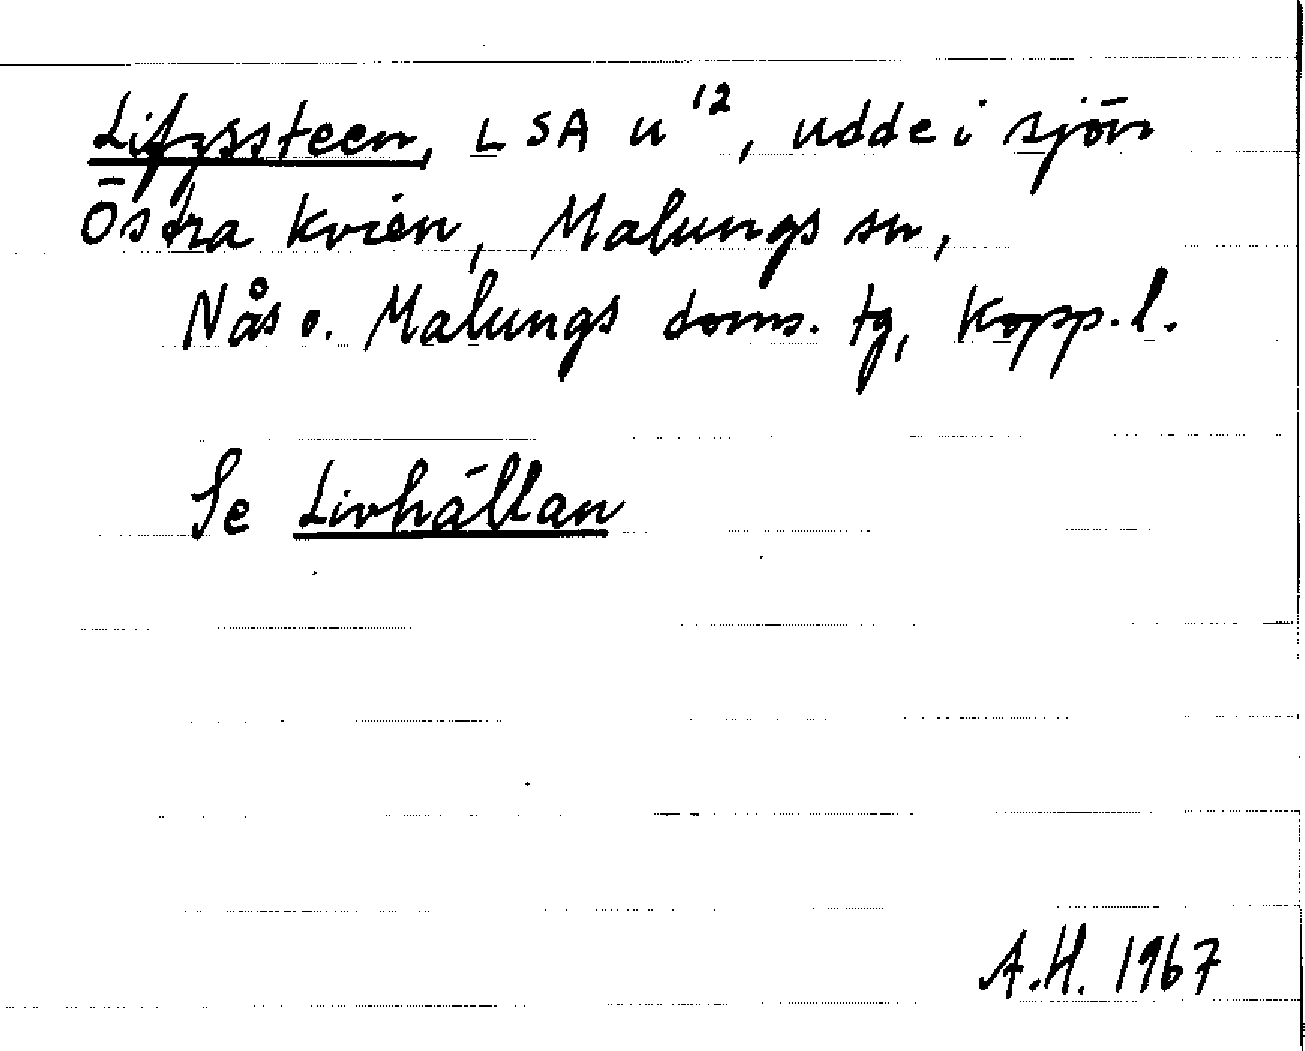 Lifzssteen, L SA u¹², udde i sjön
Östra Kvien, Malungs sn,
Nås o. Malungs doms. tg, Kopp. l.
Se Livhällan
A.H. 1967